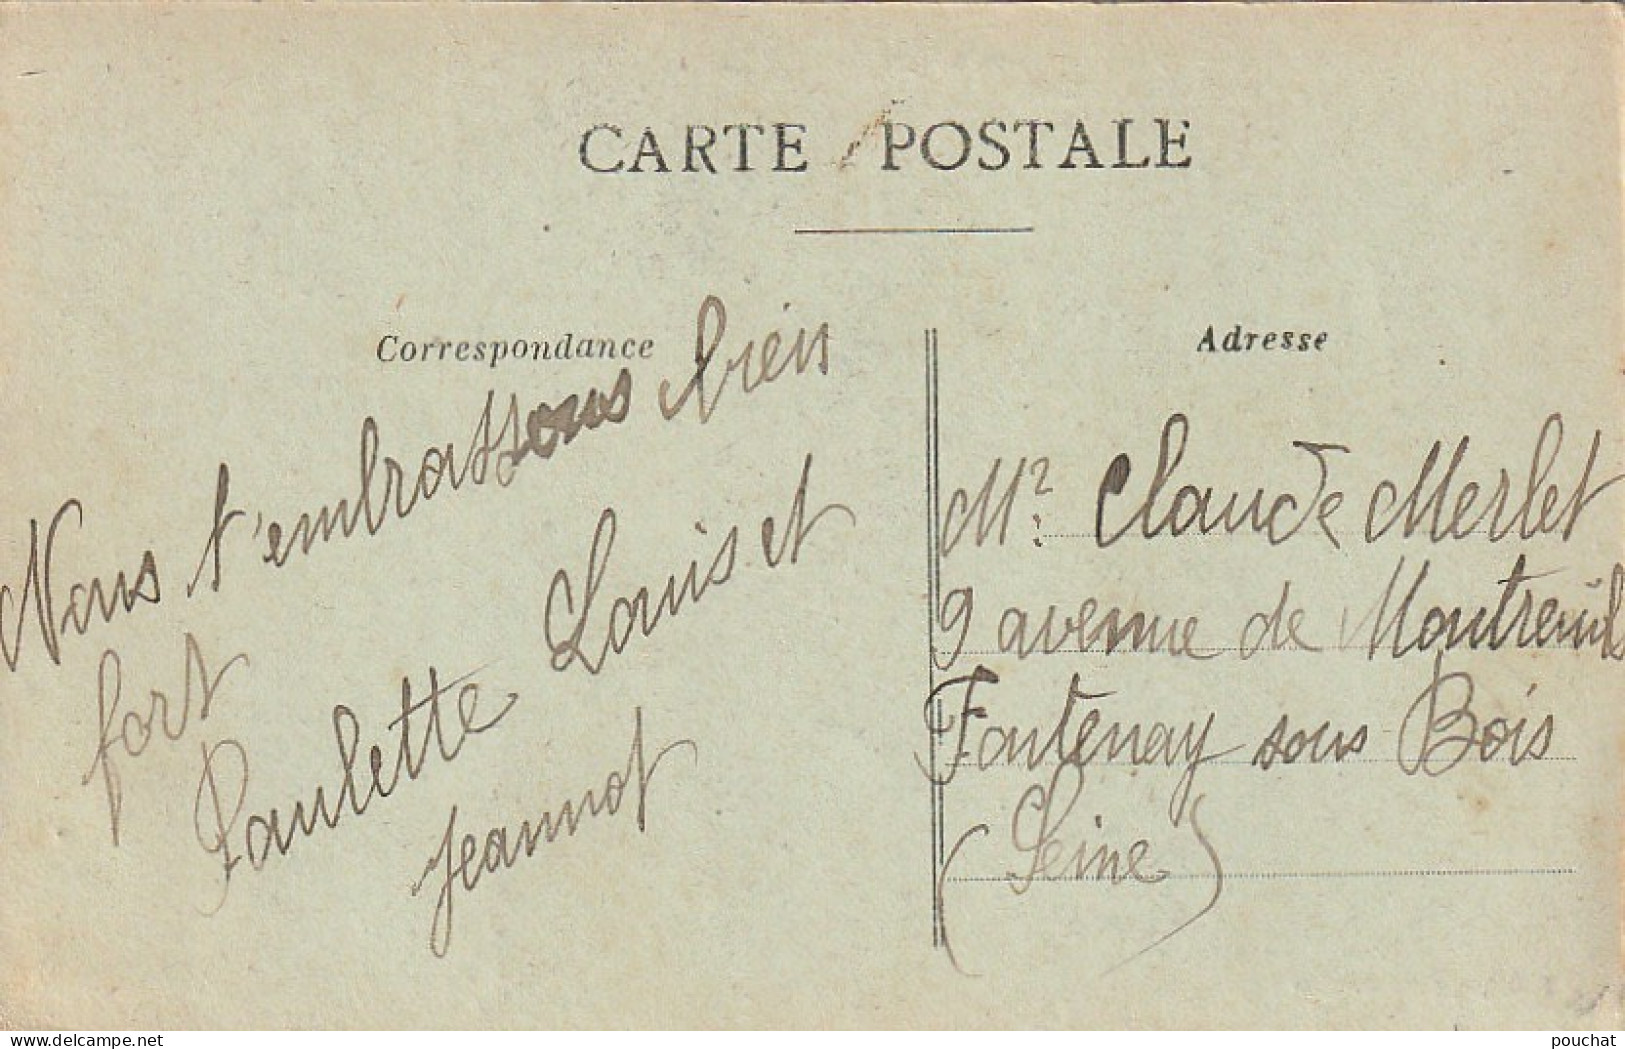 CARTE POSTALE
Correspondance
Nous t'embrassons bien
fort
Paulette Louis et
Jeannot
Adresse
Mr Claude Merlet
9 avenue de Montreuil
Fontenay sous Bois
(Seine)
delcampe.net
pouchat